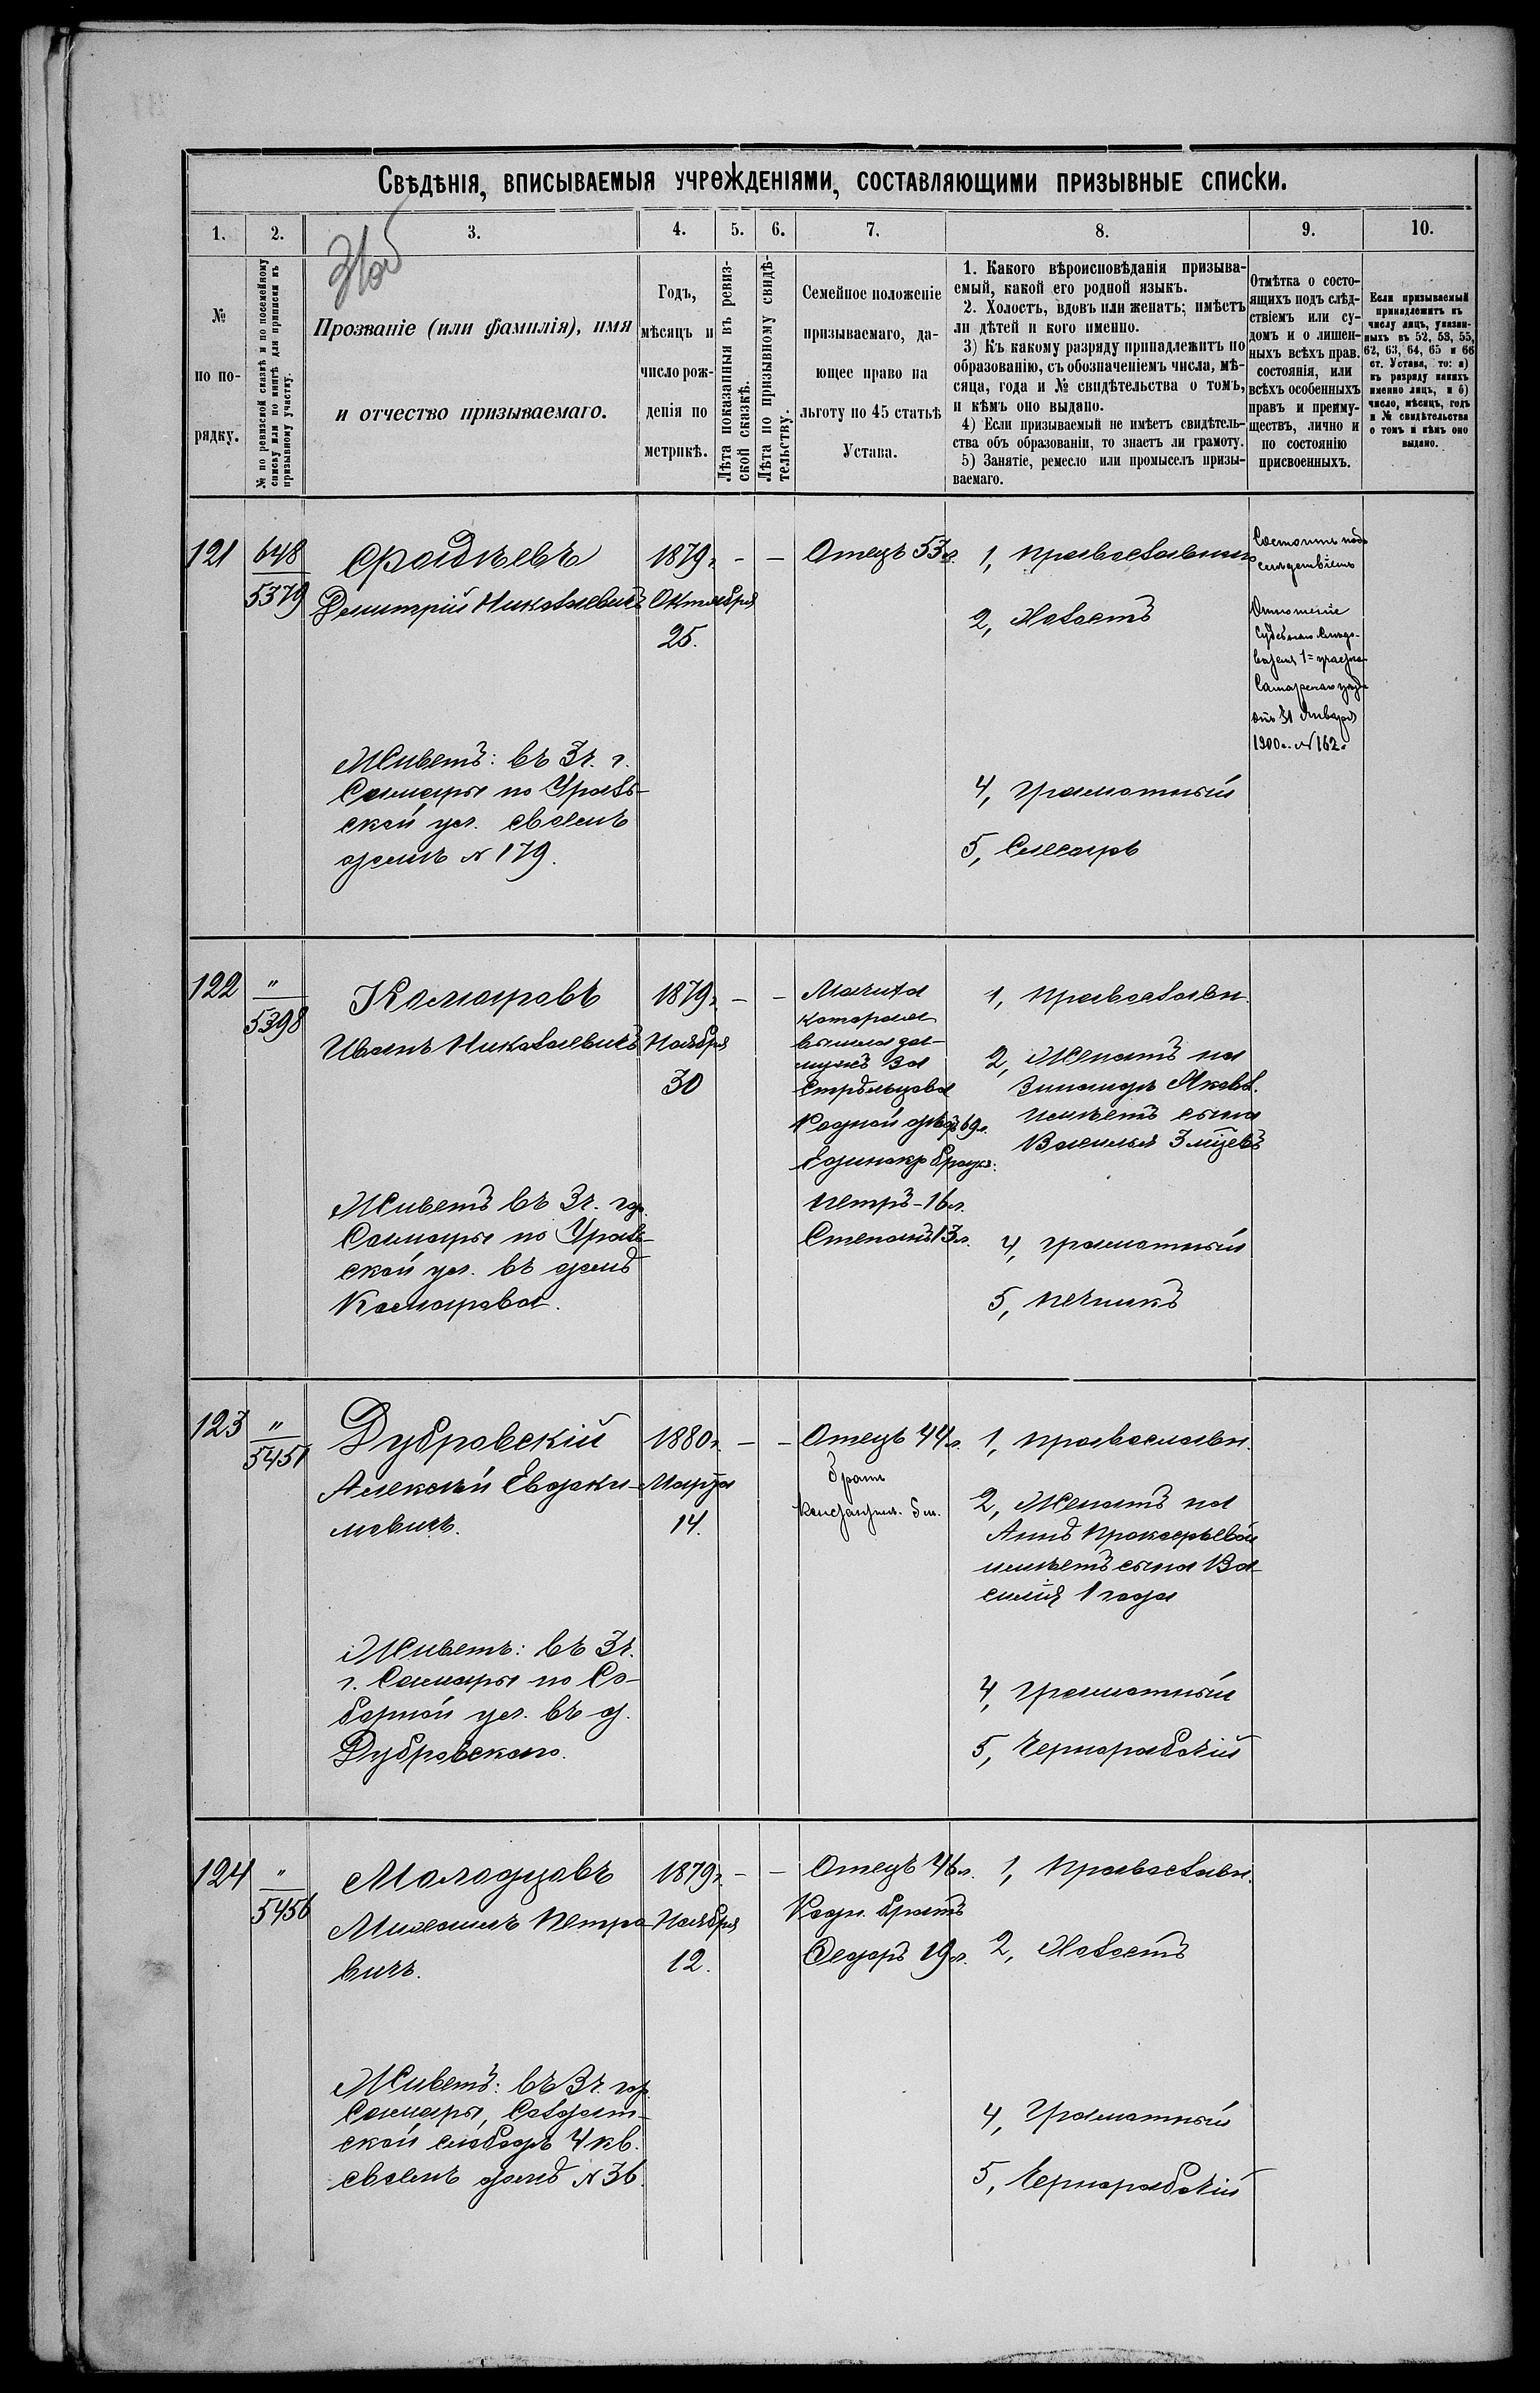 Свѣдѣнія, вписываемыя учрежденіями, составляющими призывные списки.
1.
2.
3.
4.
5.
6.
7.
8.
9.
10.
№
по по-
рядку.
№ по ревизской сказкѣ и по посемейному
списку или по книгѣ для приписки къ
призывному участку.
Прозваніе (или фамилія), имя
и отчество призываемаго.
Годъ,
мѣсяцъ и
число рож-
денія по
метрикѣ.
Лѣта показанныя въ ревиз-
ской сказкѣ.
Лѣта по призывному свидѣ-
тельству.
Семейное положеніе
призываемаго, да-
ющее право на
льготу по 45 статьѣ
Устава.
1. Какого вѣроисповѣданія призыва-
емый, какой его родной языкъ.
2. Холостъ, вдовъ или женатъ; имѣетъ
ли дѣтей и кого именно.
3) Къ какому разряду принадлежитъ по
образованію, съ обозначеніемъ числа, мѣ-
сяца, года и № свидѣтельства о томъ,
и кѣмъ оно выдано.
4) Если призываемый не имѣетъ свидѣтель-
ства объ образованіи, то знаетъ ли грамоту.
5) Занятіе, ремесло или промыселъ призы-
ваемаго.
Отмѣтка о состо-
ящихъ подъ слѣд-
ствіемъ или су-
домъ и о лишен-
ныхъ всѣхъ прав.
состоянія, или
всѣхъ особенныхъ
правъ и преиму-
ществъ, лично и
по состоянію
присвоенныхъ.
Если призываемый
принадлежитъ къ
числу лицъ, указан-
ныхъ въ 52, 53, 55,
62, 63, 64, 65 и 66
ст. Устава, то: а)
къ разряду какихъ
именно лицъ, и б)
число, мѣсяцъ, годъ
и № свидѣтельства
о томъ и кѣмъ оно
выдано.
121
648
5379
Фадѣевъ
Димитрій Николаевичъ
Живетъ: въ 3 ч. г.
Самары по Ураль-
ской ул. своемъ
домѣ № 179.
1879 г.
Октября
25.
–
–
Отецъ 53 л.
1, Православный
2, Холостъ
4, Грамотный
5, Слесарь
Состоитъ подъ
слѣдствіемъ
Отношеніе
Судебнаго Слѣдо-
вателя 1 = участка
Самарскаго уѣзда
отъ 31 Января
1900 г. № 162.
122
"
5398
Комаровъ
Иванъ Николаевичъ
Живетъ въ 3 ч. гор.
Самары по Ураль-
ской ул. въ домѣ
Комарова.
1879 г.
Ноября
30
–
–
Мачиха
которая
вышла за-
мужъ за
Стрѣльцова
Родной дѣдъ 69 л.
Единокр. братья:
Петръ – 16 л.
Степанъ 13 л.
1, Православн.
2, Женатъ на
Зинаидѣ Яковл.
имѣетъ сына
Василія 3 мѣсяцевъ
4, Грамотный
5, Печникъ
123
"
5451
Дубровскій
Алексѣй Евдоки-
мовичъ.
Живетъ: въ 3 ч.
г. Самары по Со-
борной ул. въ д.
Дубровскаго.
1880 г.
Марта
14.
–
–
Отецъ 44 л.
братъ
Константин. 5 л.
1, Православн.
2, Женатъ на
Аннѣ Прокофьевой
имѣетъ сына Ва-
силія 1 года
4, Грамотный
5, Чернорабочій
124
"
5456
Молодцовъ
Михаилъ Петро-
вичъ.
Живетъ: въ 3 ч. гор.
Самары, Солдат-
ской слободѣ 4 кв.
своемъ домѣ № 36.
1879 г.
Ноября
12.
–
–
Отецъ 46 л.
Родн. братъ
Федоръ 19 л.
1, Православн.
2, Холостъ
4, Грамотный
5, Чернорабочій